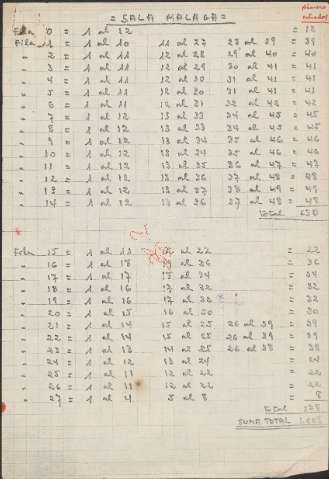 = SALA MALAGA =
primero
Fila 0 = 1 al 12 = 12
Fila 1 = 1 al 10 11 al 27 28 al 39 = 39
" 2 = 1 al 11 12 al 28 29 al 40 = 40
" 3 = 1 al 11 12 al 29 30 al 41 = 41
" 4 = 1 al 11 12 al 30 31 al 41 = 41
" 5 = 1 al 11 12 al 30 31 al 41 = 41
" 6 = 1 al 11 12 al 31 32 al 42 = 42
" 7 = 1 al 12 13 al 33 34 al 45 = 45
" 8 = 1 al 12 13 al 33 34 al 45 = 45
" 9 = 1 al 12 13 al 34 35 al 46 = 46
" 10 = 1 al 12 13 al 34 35 al 46 = 46
" 11 = 1 al 12 13 al 35 36 al 47 = 47
" 12 = 1 al 12 13 al 36 37 al 48 = 48
" 13 = 1 al 12 13 al 37 38 al 49 = 49
" 14 = 1 al 12 13 al 36 37 al 48 = 48
Total 630
Fila 15 = 1 al 11 = 12 al 22 = 22
" 16 = 1 al 18 19 al 36 = 36
" 17 = 1 al 17 18 al 34 = 34
" 18 = 1 al 16 17 al 32 = 32
" 19 = 1 al 16 17 al 32 = 32
" 20 = 1 al 15 16 al 30 = 30
" 21 = 1 al 14 15 al 25 26 al 39 = 39
" 22 = 1 al 14 15 al 25 26 al 39 = 39
" 23 = 1 al 13 14 al 25 26 al 38 = 38
" 24 = 1 al 12 13 al 24 = 24
" 25 = 1 al 11 12 al 22 = 22
" 26 = 1 al 11 12 al 22 = 22
" 27 = 1 al 4 5 al 8 = 8
Total
SUMA TOTAL